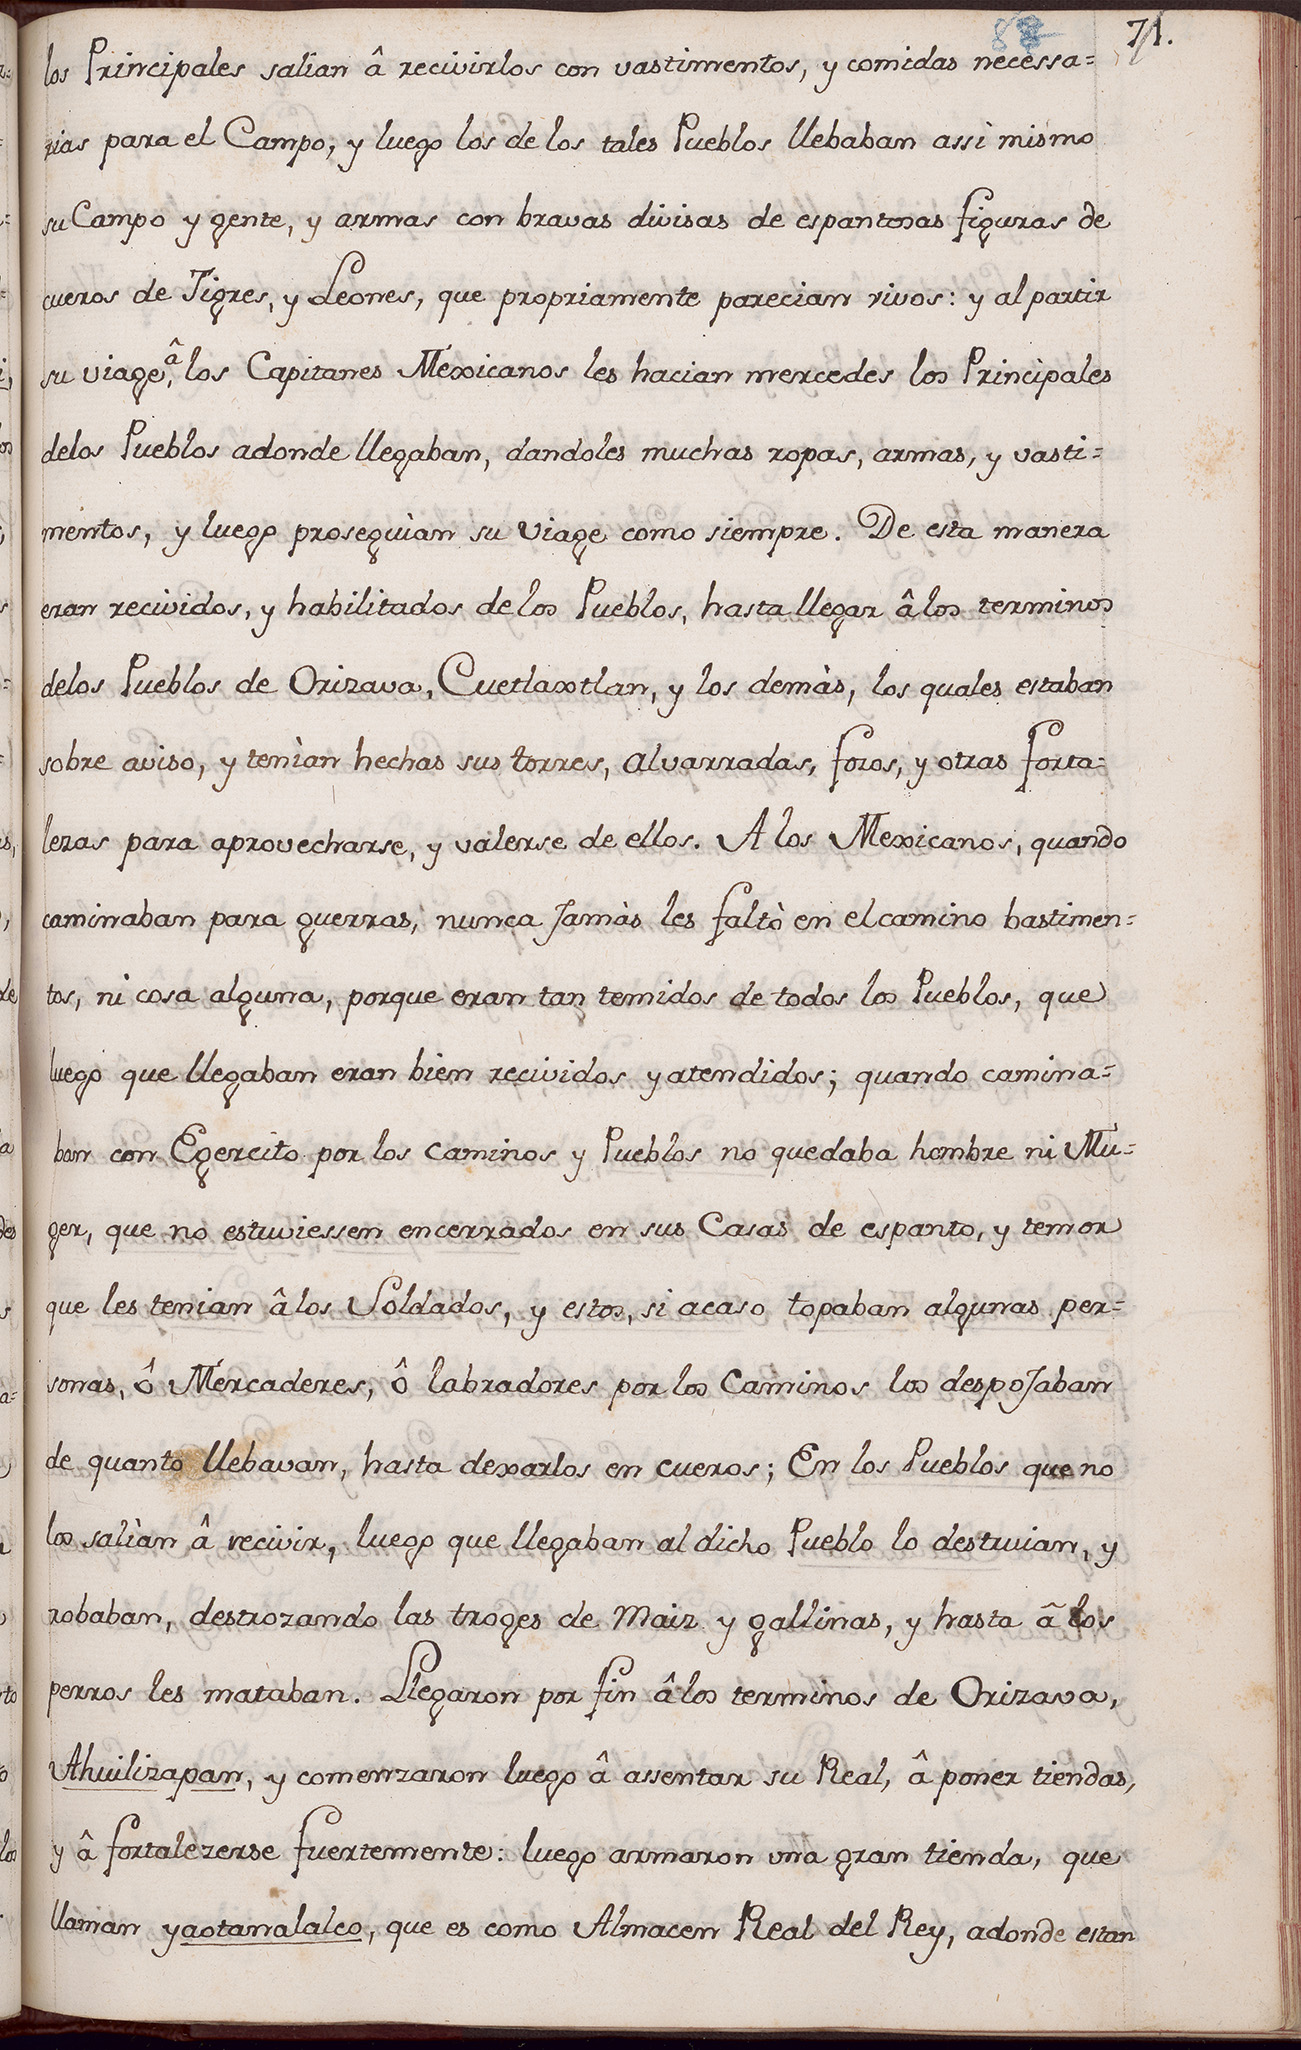 71.
los Principales salian â recivirlos con vastimentos, y comidas necessa=
rias para el Campo, y luego los de los tales Pueblos llebaban assi mismo
su Campo y gente, y armas con bravas divisas de espantosas figuras de
cueros de Tigres, y Leones, que propriamente parecian vivos: y al partir
su viage, â los Capitanes Mexicanos les hacian mercedes los Principales
delos Pueblos adonde llegaban, dandoles muchas ropas, armas, y vasti=
mentos, y luego proseguìan su viage como siempre. De esta manera
eran recividos, y habilitados de los Pueblos, hasta llegar â los terminos
delos Pueblos de Orizava, Cuetlaxtlan, y los demàs, los quales estaban
sobre aviso, y tenìan hechas sus torres, alvarradas, fosos, y otras forta-
lezas para aprovecharse, y valerse de ellos. A los Mexicanos, quando
caminaban para guerras, nunca Jamàs les faltò en el camino bastimen=
tos, ni cosa alguna, porque eran tan temidos de todos los Pueblos, que
luego que llegaban eran bien recividos y atendidos; quando camina=
ban con Egercito por los caminos y Pueblos no quedaba hombre ni Mu=
ger, que no estuviessen encerrados en sus Casas de espanto, y temor
que les tenian â los Soldados, y estos, si acaso topaban algunas per=
sonas, ô Mercaderes, ô labradores por los Caminos los despoJaban
de quanto llebavan, hasta dexarlos en cueros; En los Pueblos que no
los salìan â recivir, luego que llegaban al dicho Pueblo lo destruian, y
robaban, destrozando las troges de Maiz y gallinas, y hasta â los
perros les mataban. Llegaron por fin â los terminos de Orizava,
Ahuilizapan, y comenzaron luego â assentar su Real, â poner tiendas,
y â fortalezerse fuertemente: luego armaron vna gran tienda, que
llaman yaotanalalco, que es como Almacen Real del Rey, adonde estan